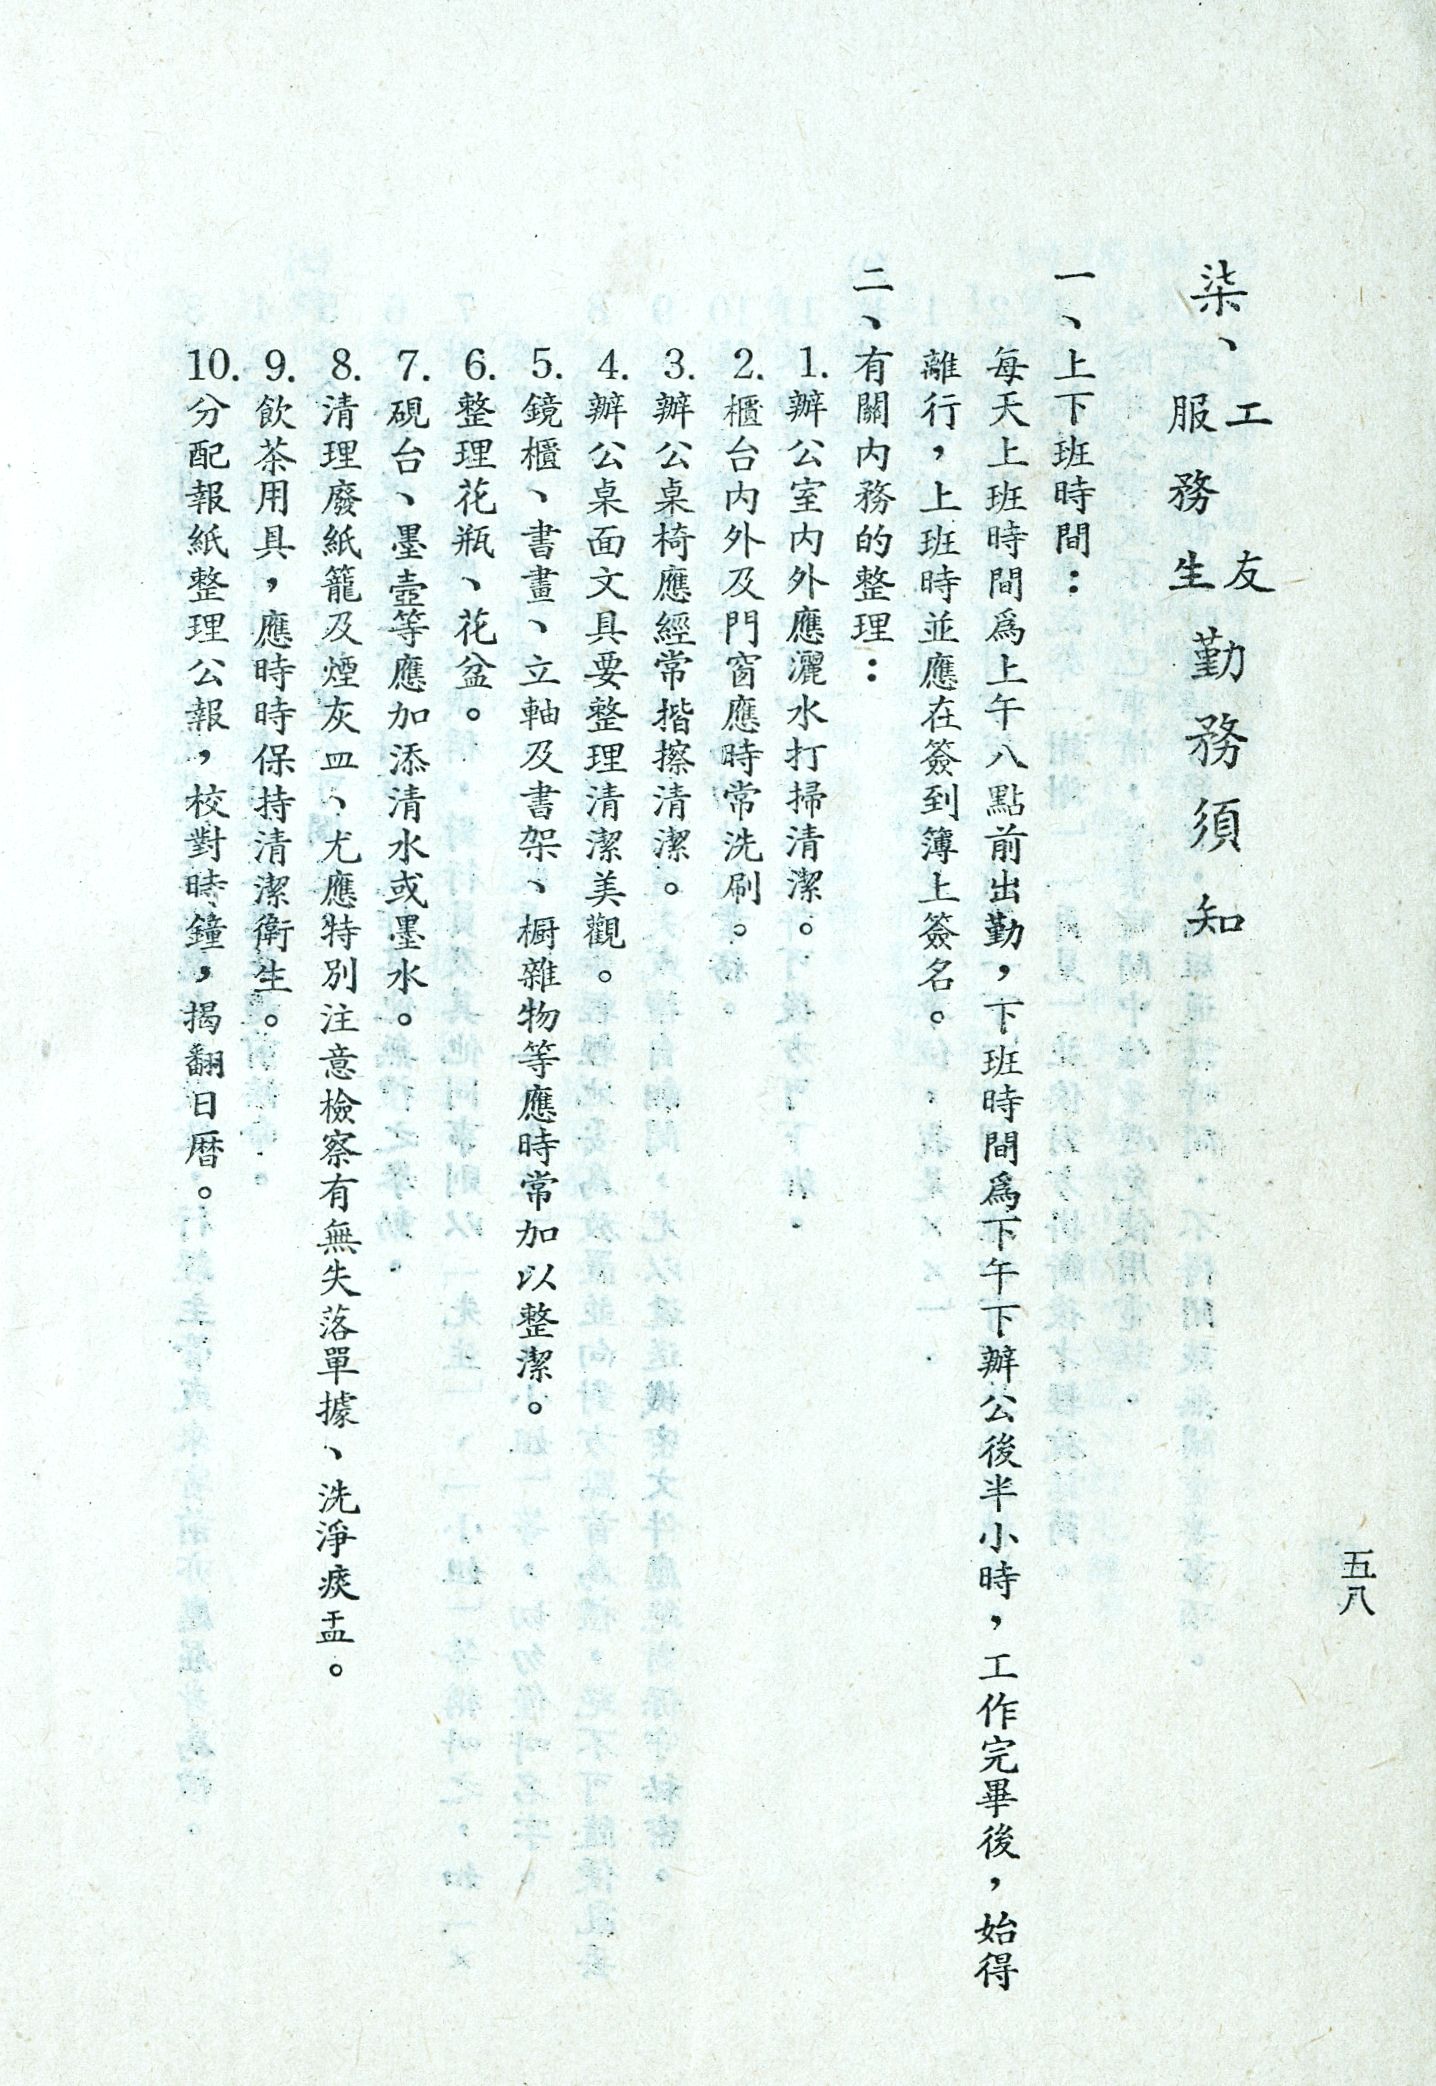 柒、工友服務生勤務須知
一、上下班時間：
每天上班時間爲上午八點前出勤，下班時間爲下午下辦公後半小時，工作完畢後，始得
離行，上班時並應在簽到簿上簽名。
二、有關内務的整理：
1.辦公室内外應灑水打掃清潔。
2.櫃台内外及門窗應時常洗刷。
3.辦公桌椅應經常揩擦清潔。
4.辦公桌面文具要整理清潔美觀。
5.鏡櫃、書畫、立軸及書架、橱雜物等應時常加以整潔。
6.整理花瓶、花盆。
7.硯台、墨壺等應加添清水或墨水。
8.清理廢紙籠及煙灰皿、尤應特別注意檢察有無失落單據、洗淨痰盂。
9.飲茶用具，應時時保持清潔衛生。
10.分配報紙整理公報，校對時鐘，揭翻日曆。
五八